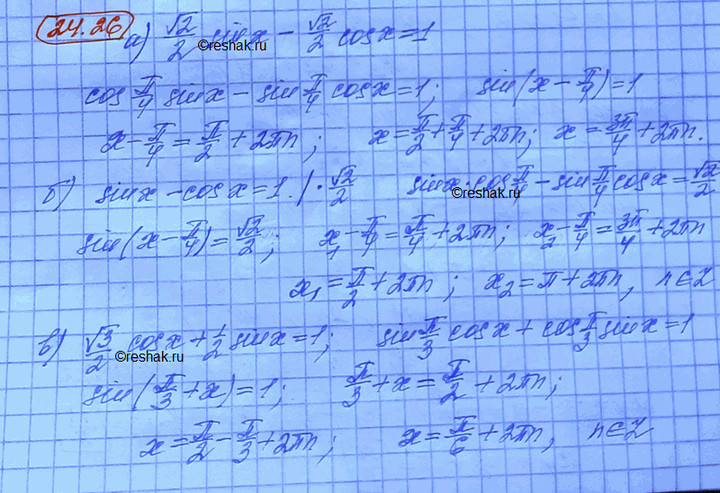 24.26
а) √2/2 sin x − √2/2 cos x = 1
©reshak.ru
cos π/4 sin x − sin π/4 cos x = 1; sin(x − π/4) = 1
x − π/4 = π/2 + 2πn; x = π/2 + π/4 + 2πn; x = 3π/4 + 2πn.
б) sin x − cos x = 1. | · √2/2 sin x · cos π/4 − sin π/4 cos x = √2/2
©reshak.ru
sin(x − π/4) = √2/2; x₁ − π/4 = π/4 + 2πn; x₂ − π/4 = 3π/4 + 2πn
x₁ = π/2 + 2πn; x₂ = π + 2πn, n∈Z
в) √3/2 cos x + 1/2 sin x = 1; sin π/3 cos x + cos π/3 sin x = 1
©reshak.ru
sin(π/3 + x) = 1; π/3 + x = π/2 + 2πn;
x = π/2 − π/3 + 2πn; x = π/6 + 2πn, n∈Z